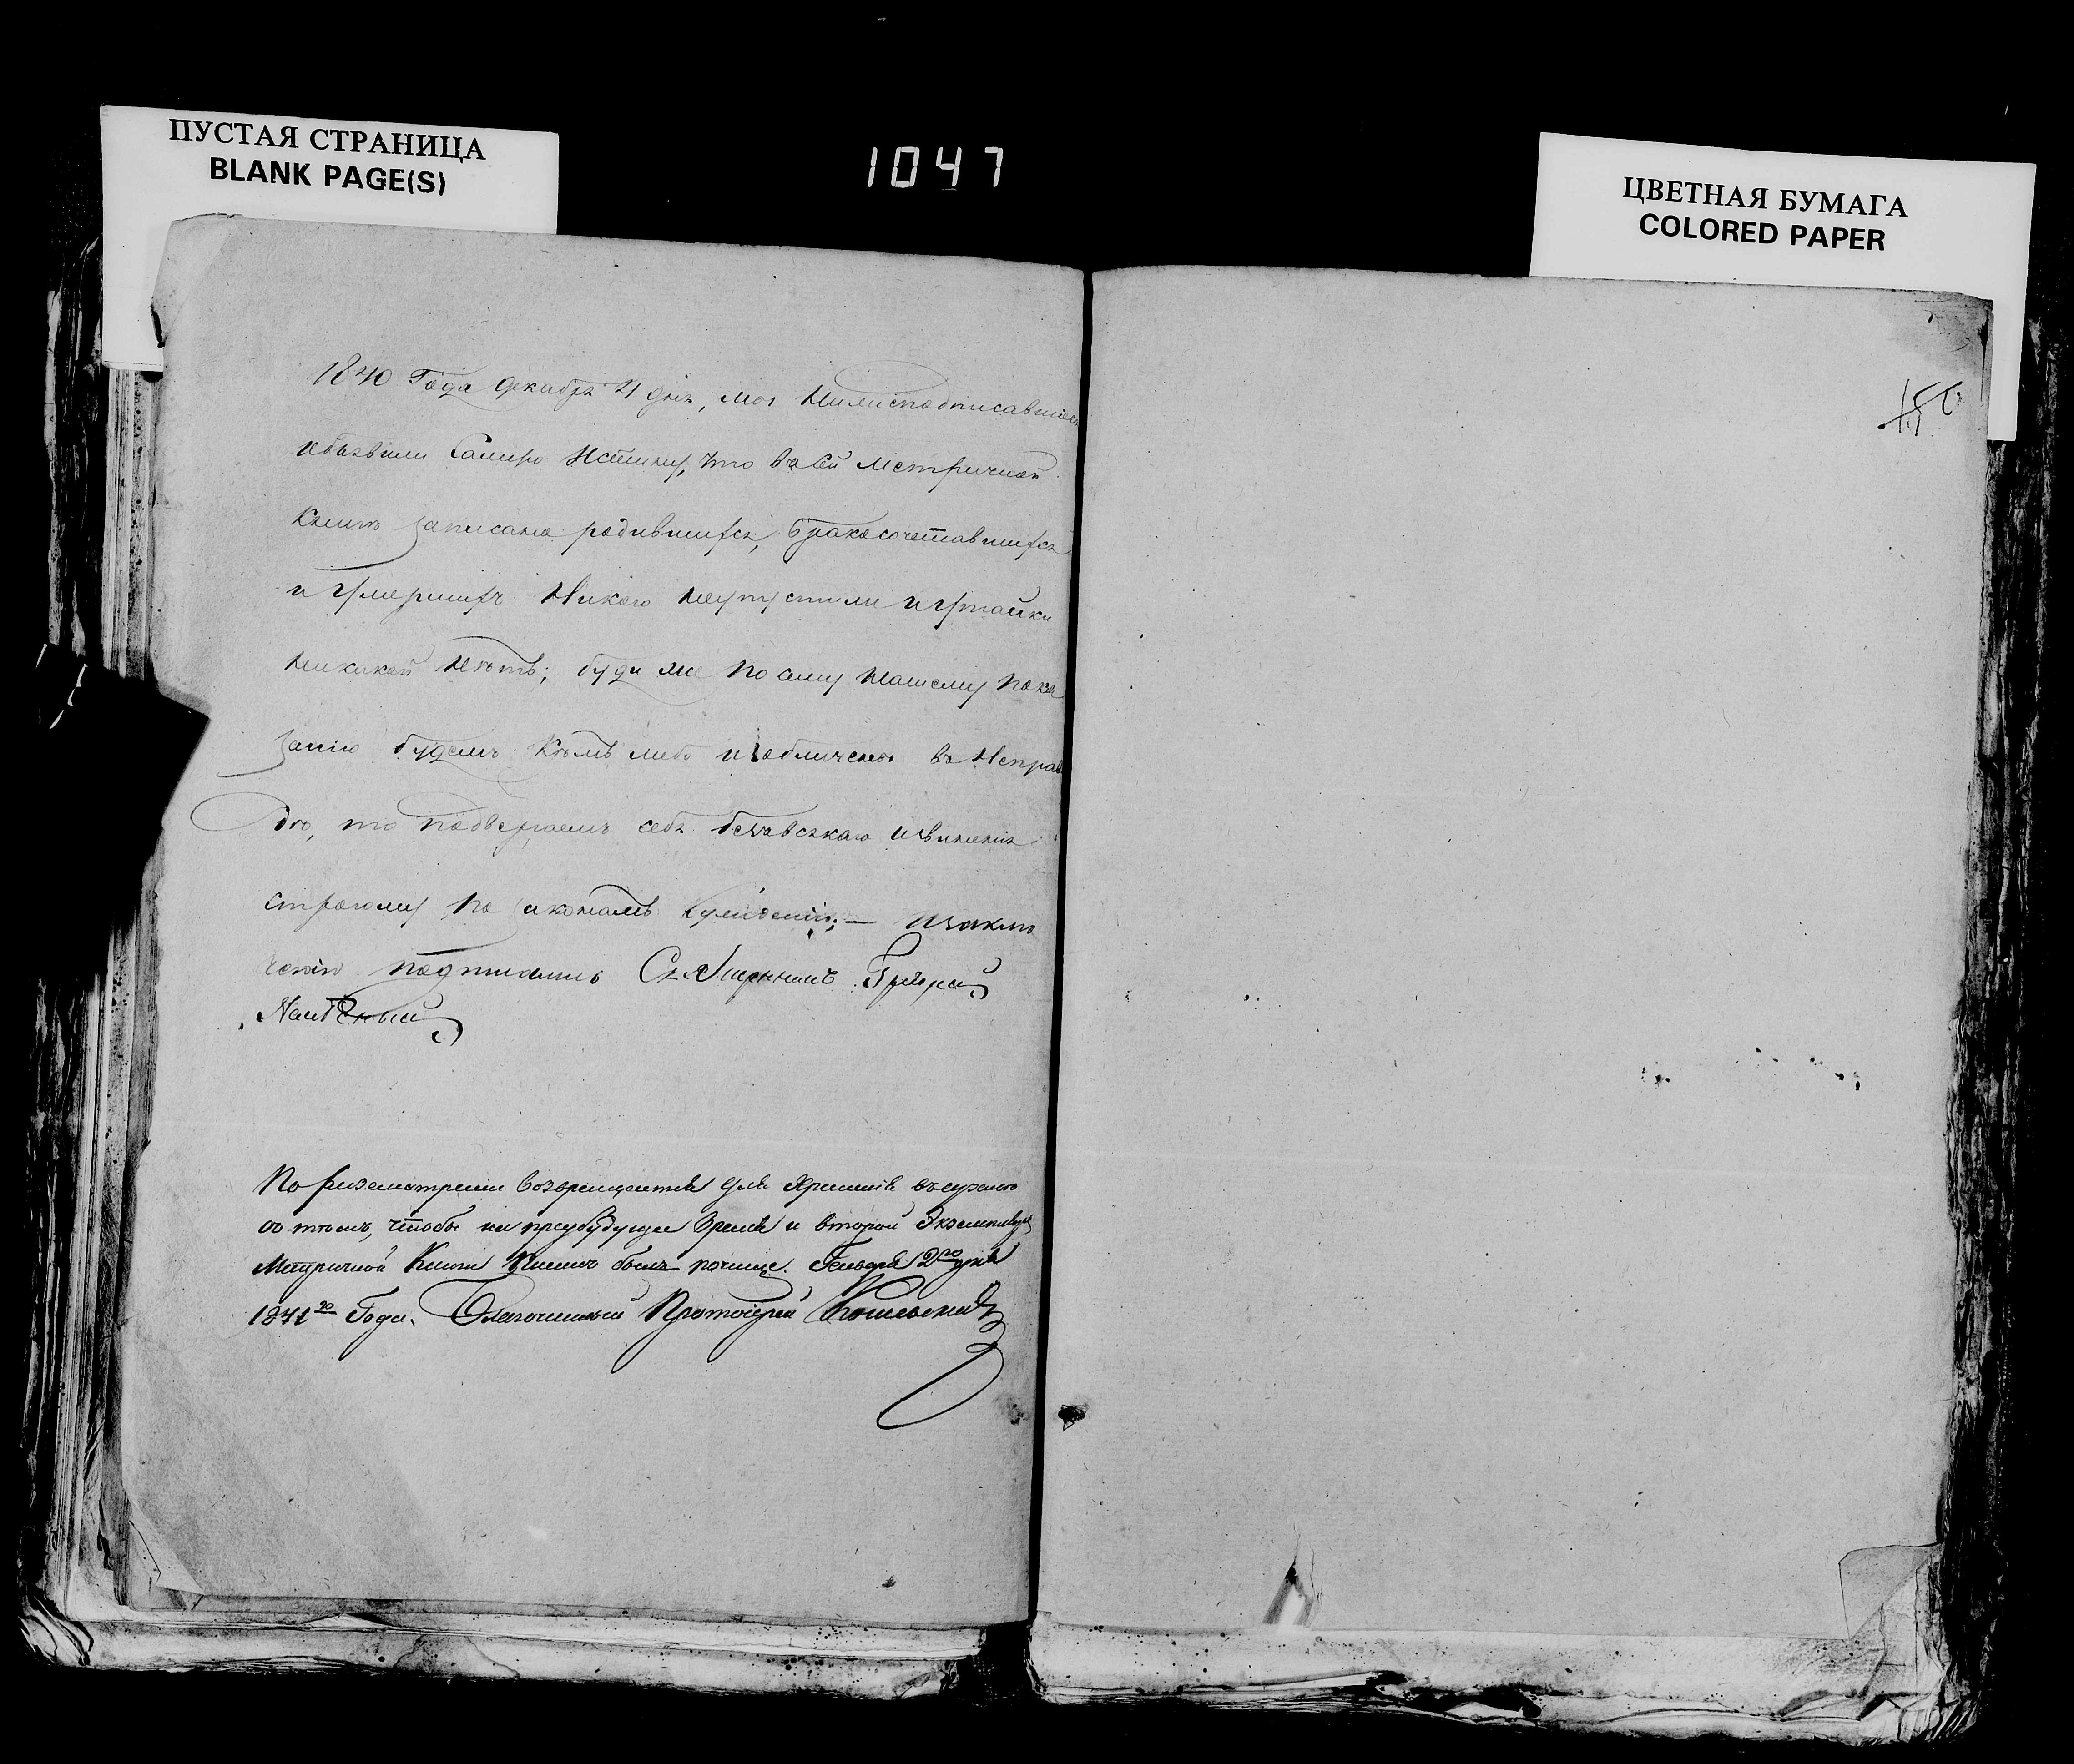 ПУСТАЯ СТРАНИЦА
BLANK PAGE(S)
1047
ЦВЕТНАЯ БУМАГА
COLORED PAPER
1840 Года декабря дня, мы Нижеподписавшиеся
самую Истинну, что въ сей метричной
Книгѣ записано родившихся, бракосочетавшихся
и умершихъ Никого неупустили и утайки
никакой Нѣтъ; буди же по сему Нашему пока
занію будемъ Кѣмъ либо изобличены въ Неправ
дѣ, то подвергаемъ себя безъ всякаго извиненія
строгому по законамъ сужденію; — въ заклю
ченіи подписались Священникъ
По разсмотреніи возвращается для храненія въ церковь
съ тѣмъ, чтобы на предбудуще время и второй Экземпляръ
Метричной Книги писанъ былъ почище. Генваря 2го дня
1841го Года. Благочинный Протоіерей